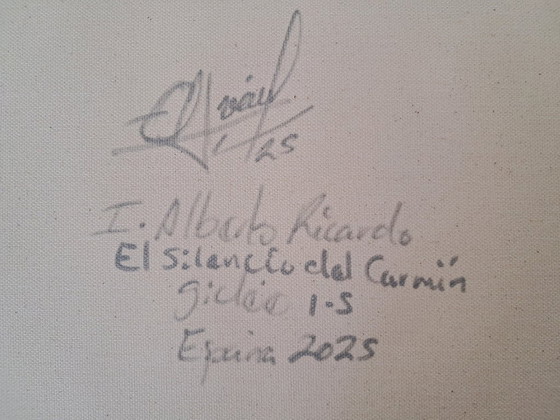 25
I. Alberto Ricardo
El Silencio del Carmín
giclée 1-5
España 2025